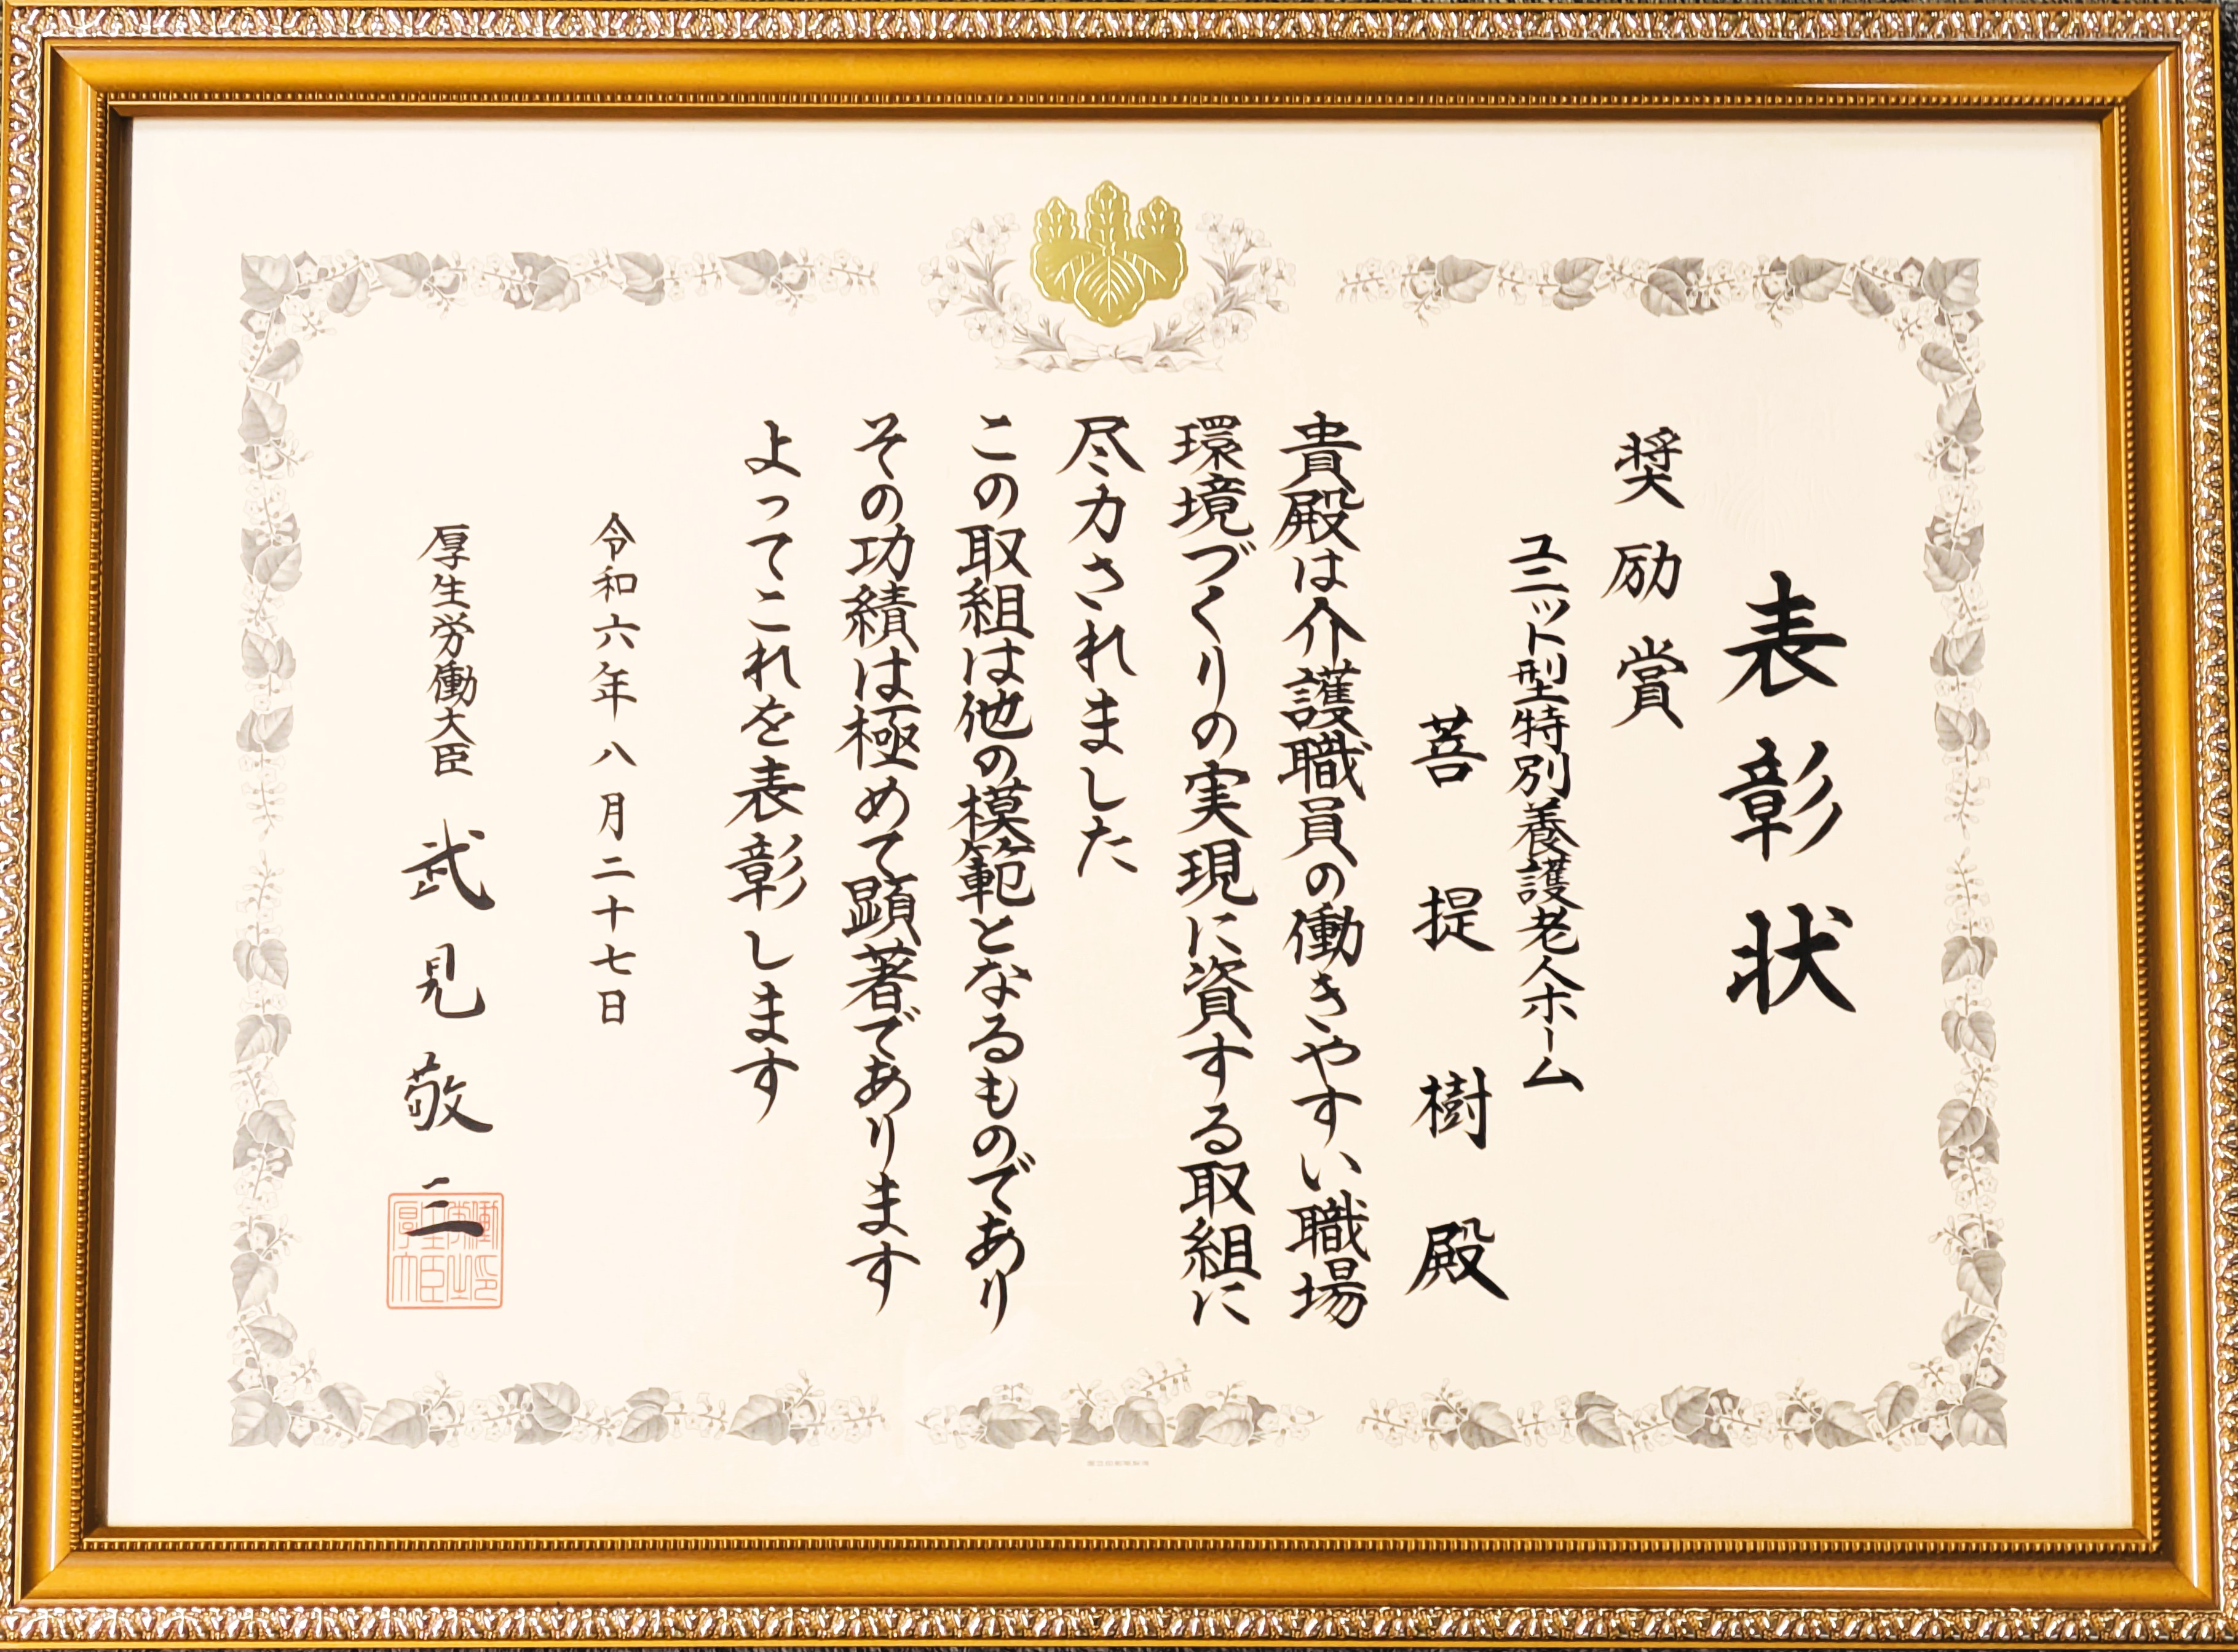 表彰状
奨励賞
ユニット型特別養護老人ホーム
菩提樹殿
貴殿は介護職員の働きやすい職場
環境づくりの実現に資する取組に
尽力されました
この取組は他の模範となるものであり
その功績は極めて顕著であります
よってこれを表彰します
令和六年八月二十七日
厚生労働大臣 武見敬三